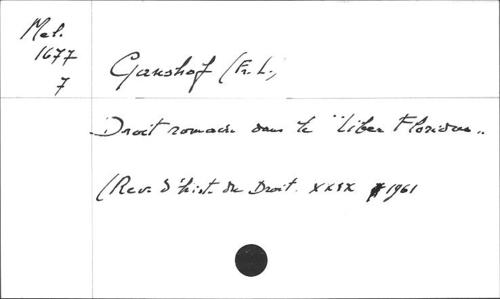 Mel.
1677
7
Ganshof (Fr. L.)
Droit romain dans le "Liber Floridus"
(Rev. d'hist. du Droit. XXIX 1961